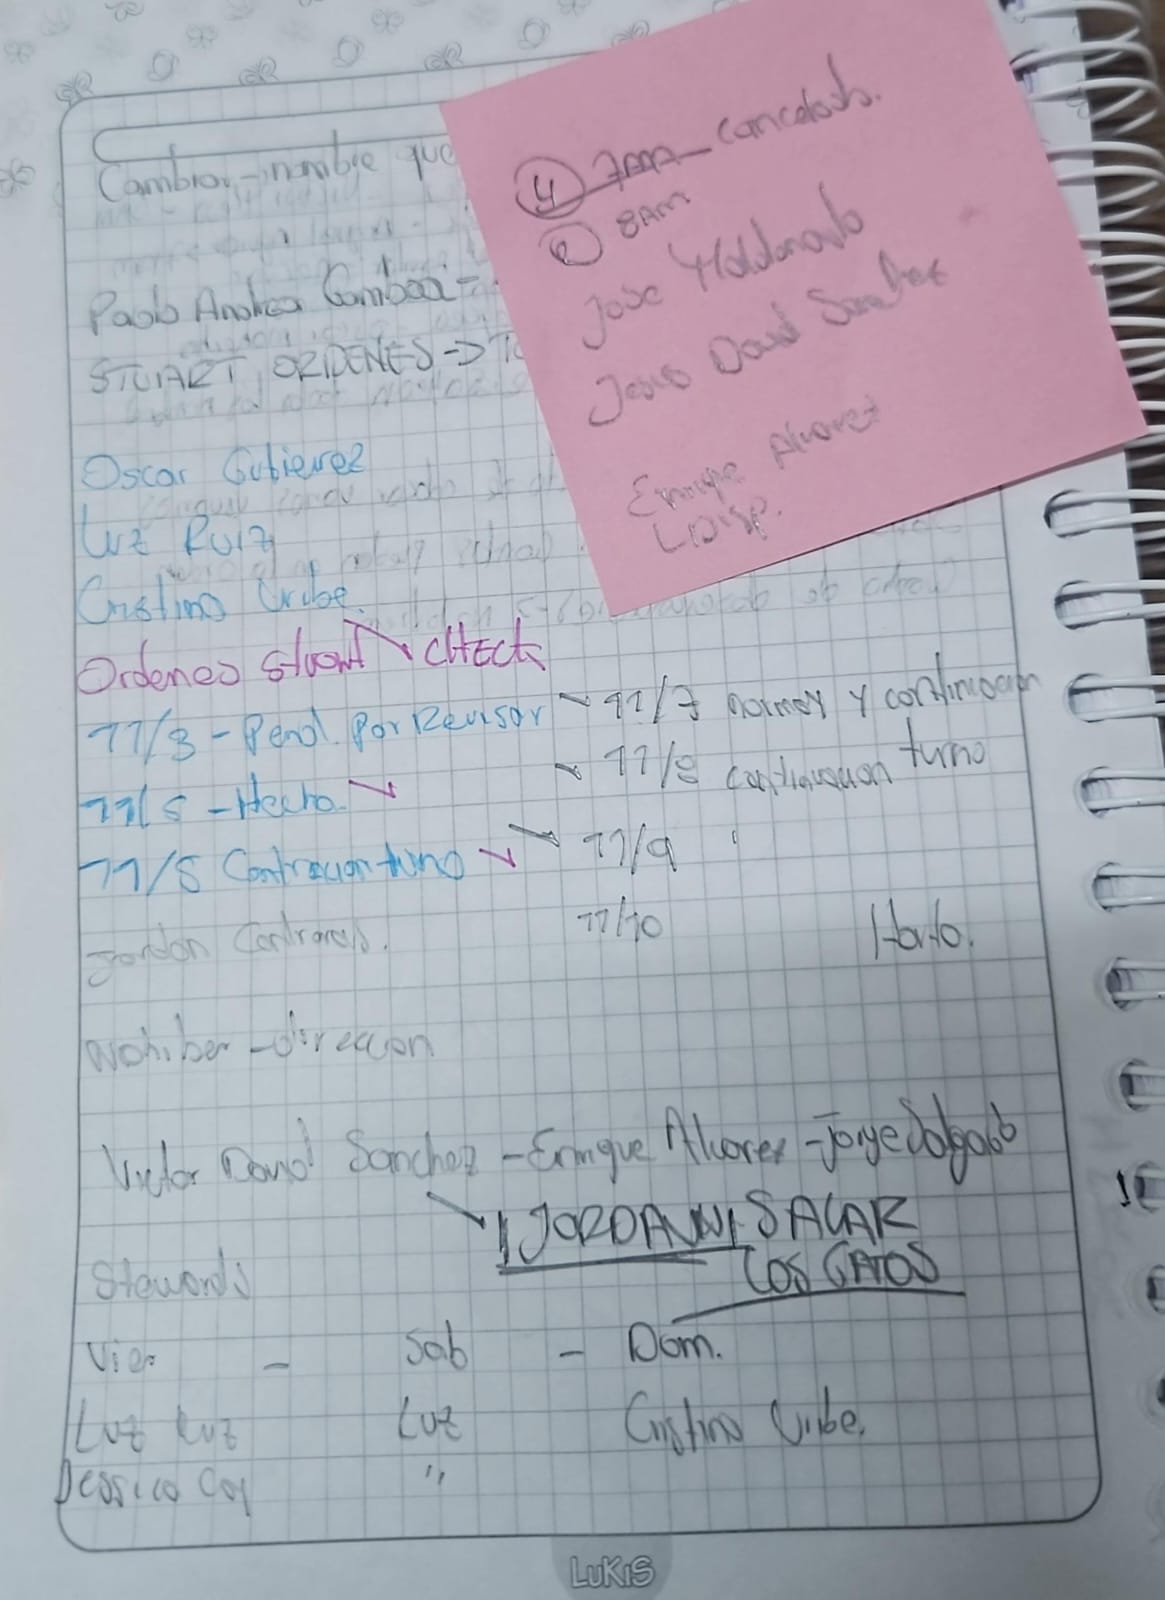 4 7AM - Cancelado.
2 8AM
Jose Maldonado
Jesus David Sanchez
Enrique Alvarez
Cambiar - nombre que
Paola Andrea Gamboa -
STUART ORDENES ->
Oscar Gutierrez
Luz Ruiz
Cristina Uribe.
Ordenes Stuart CHECK
11/3 - Pend. Por Revisar - 11/7 normal y continuacion
11/5 - Hecho - 11/8 continuacion turno
11/5 Continuacion turno 11/9 "
Jordan Contreras. 11/10 Harto.
Nohiber - direccion
Victor David Sanchez - Enrique Alvarez - Jorge Salgado
JORDANNI SACAR
LOS GATOS
Stewards
Vier - Sab - Dom.
Luz Ruz Luz Cristina Uribe.
Dessica "
LUKIS